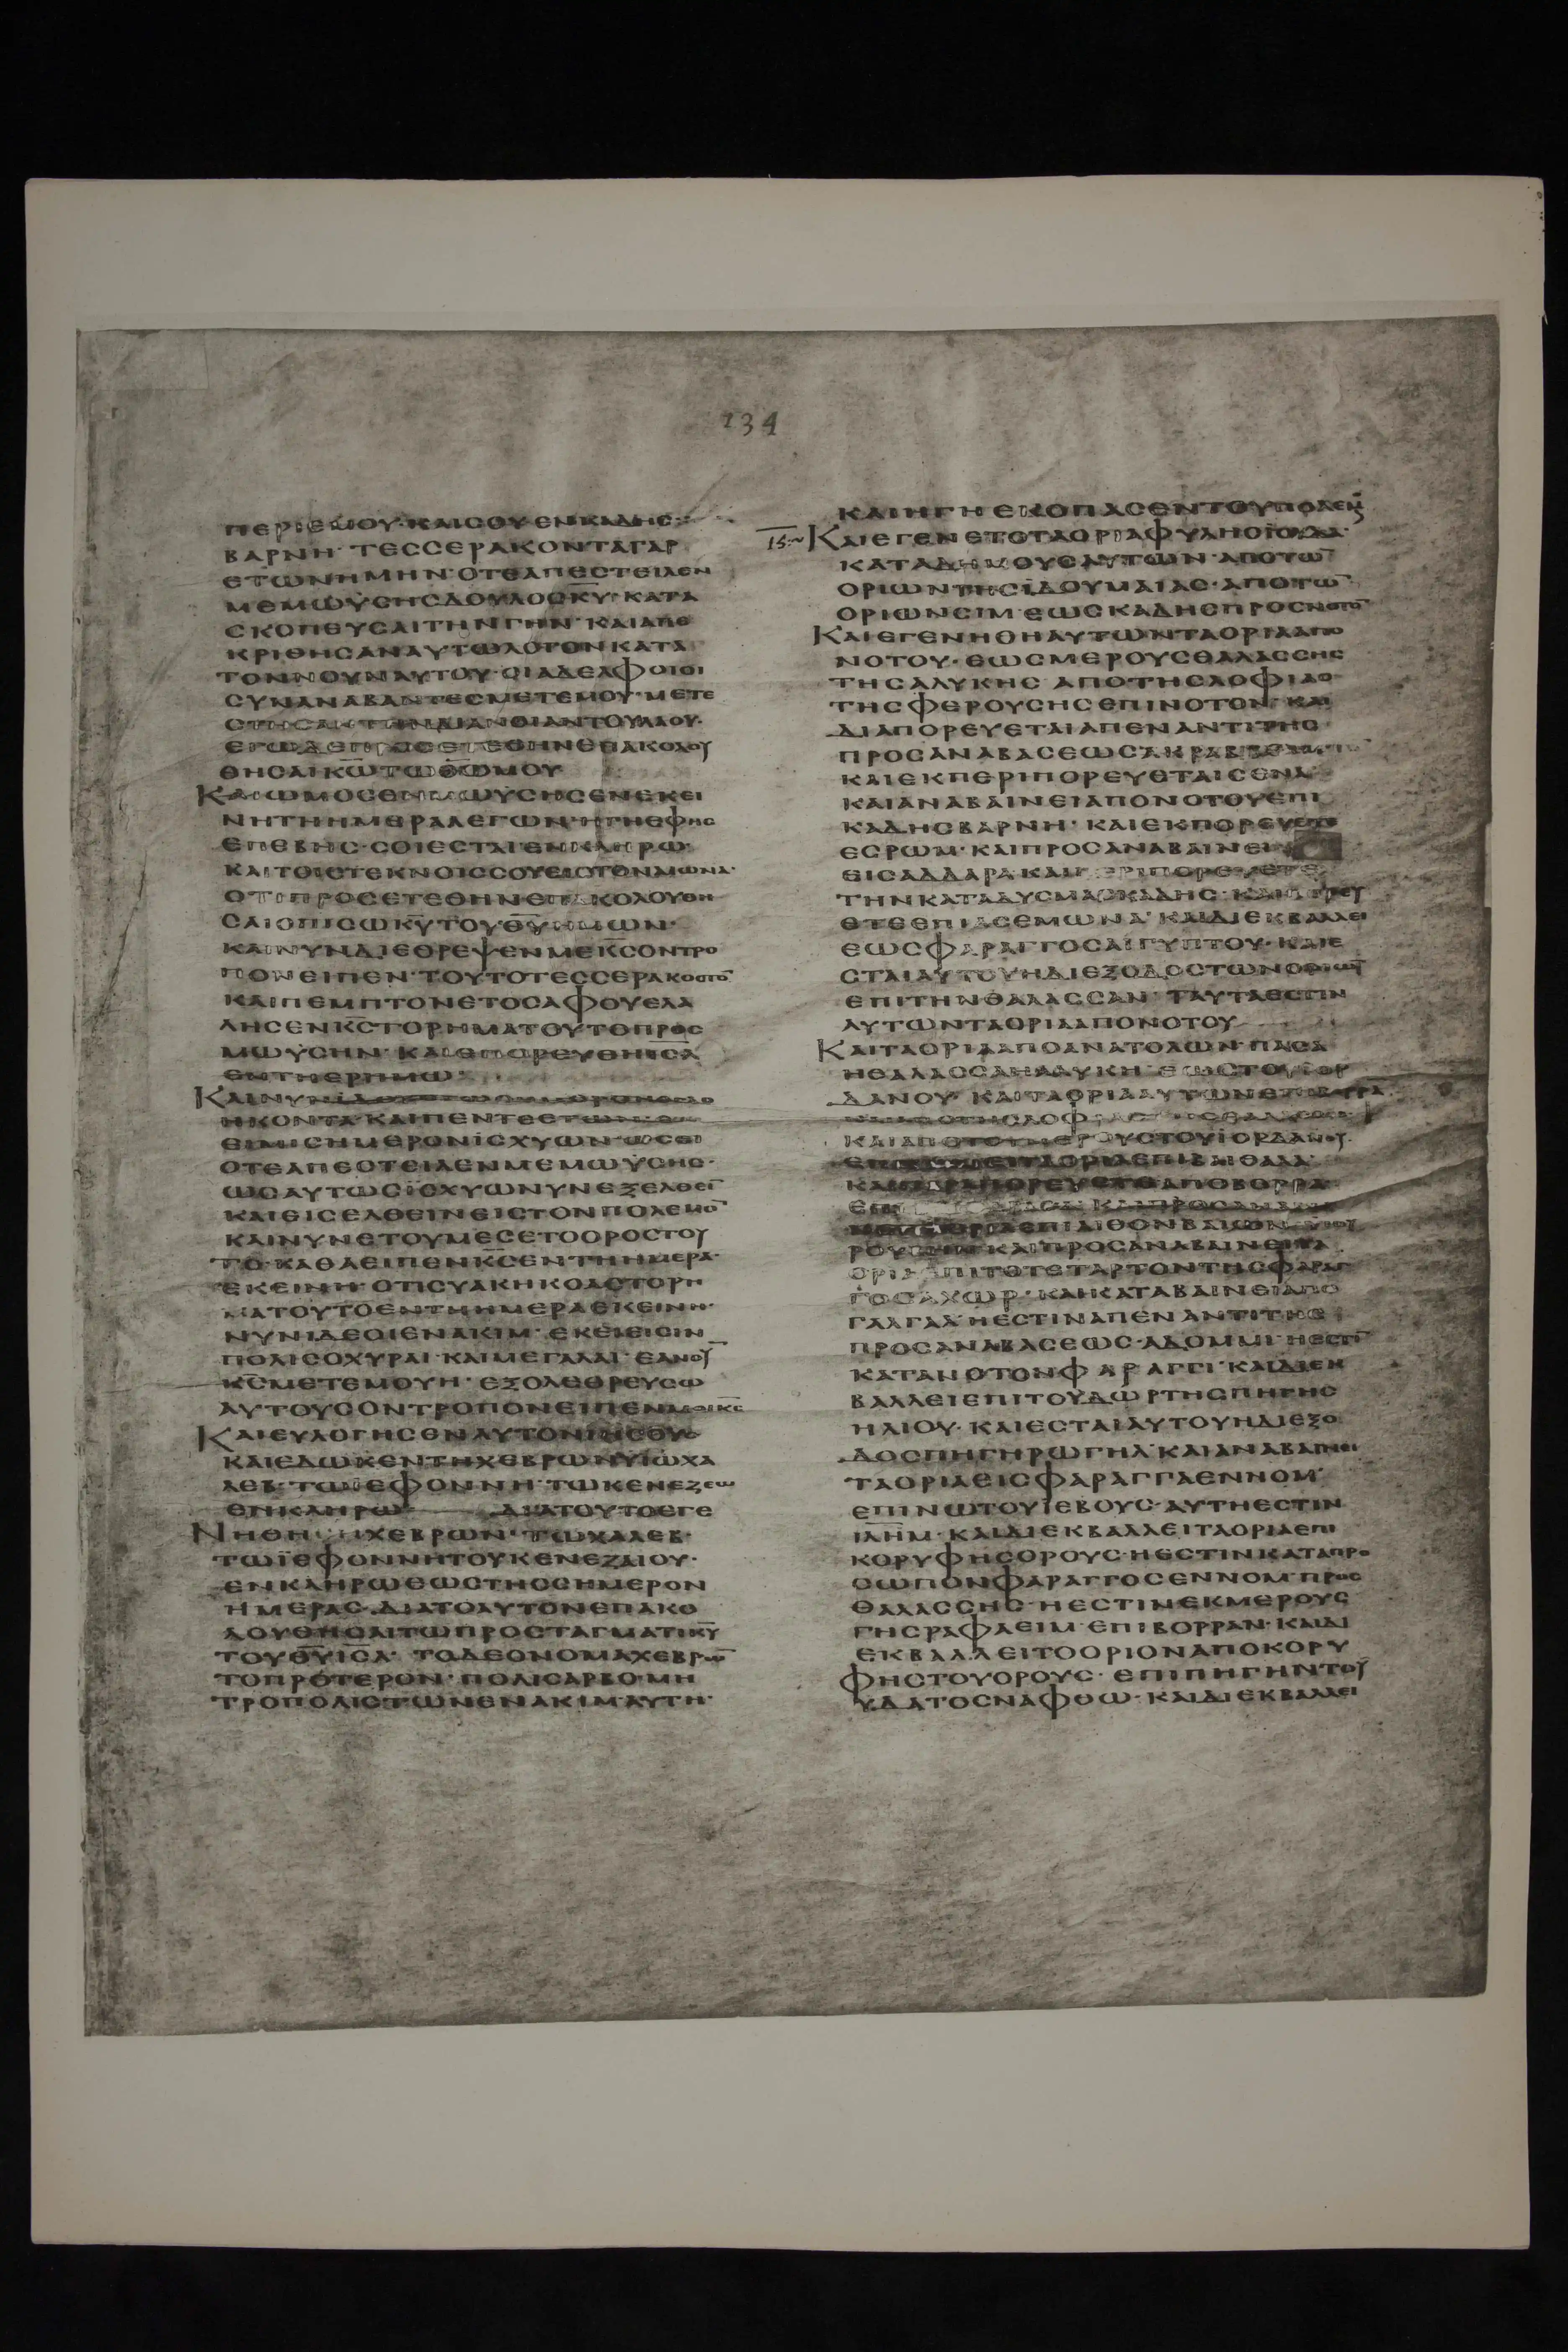 134
ΠΕΡΙΕΜΟΥ·ΚΑΙСΟΥΕΝΚΑΔΗС·
ΒΑΡΝΗ·ΤΕССΕΡΑΚΟΝΤΑΓΑΡ
ΕΤΩΝΗΜΗΝ·ΟΤΕΑΠΕСΤΕΙΛΕΝ
ΜΕΜΩΫСΗСΔΟΥΛΟСΚ̅Υ̅·ΚΑΤΑ
СΚΟΠΕΥСΑΙΤΗΝΓΗΝ·ΚΑΙΑΠΕ
ΚΡΙΘΗСΑΝΑΥΤΩΛΟΓΟΝΚΑΤΑ
ΤΟΝΝΟΥΝΑΥΤΟΥ·ΟΙΑΔΕΛΦΟΙΟΙ
СΥΝΑΝΑΒΑΝΤΕСΜΕΤΕΜΟΥ·ΜΕΤΕ
СΤΗСΑΝΤΗΝΔΙΑΝΟΙΑΝΤΟΥΛΑΟΥ·
ΕΓΩΔΕΠΡΟСΕΤΕΘΗΝΕΠΑΚΟΛΟΥ
ΘΗСΑΙΚ̅Ω̅ΤΩΘ̅Ω̅ΜΟΥ
ΚΑΙΩΜΟСΕΝΜΩΫСΗСΕΝΕΚΕΙ
ΝΗΤΗΗΜΕΡΑΛΕΓΩΝ·ΗΓΗΕΦΗС
ΕΠΕΒΗС·СΟΙΕСΤΑΙΕΝΚΛΗΡΩ·
ΚΑΙΤΟΙСΤΕΚΝΟΙССΟΥΕΙСΤΟΝΑΙΩΝΑ·
ΟΤΙΠΡΟСΕΤΕΘΗΝΕΠΑΚΟΛΟΥΘΗ
СΑΙΟΠΙСΩΚ̅Υ̅ΤΟΥΘ̅Υ̅ΗΜΩΝ·
ΚΑΙΝΥΝΔΙΕΘΡΕΨΕΝΜΕΚ̅С̅ΟΝΤΡΟ
ΠΟΝΕΙΠΕΝ·ΤΟΥΤΟΤΕССΕΡΑΚΟСΤΟ̅
ΚΑΙΠΕΜΠΤΟΝΕΤΟСΑΦΟΥΕΛΑ
ΛΗСΕΝΚ̅С̅ΤΟΡΗΜΑΤΟΥΤΟΠΡΟС
ΜΩΫСΗΝ·ΚΑΙΕΠΟΡΕΥΘΗΙ̅С̅Λ̅
ΕΝΤΗΕΡΗΜΩ·
ΗΚΟΝΤΑΚΑΙΠΕΝΤΕΕΤΩΝ
ΕΙΜΙСΗΜΕΡΟΝΪСΧΥΩΝ·ΩСΕΙ
ΟΤΕΑΠΕСΤΕΙΛΕΝΜΕΜΩΫСΗС·
ΩСΑΥΤΩСΪСΧΥΩΝΥΝΕΞΕΛΘΕΙ̅
ΚΑΙΕΙСΕΛΘΕΙΝΕΙСΤΟΝΠΟΛΕΜΟ̅
ΚΑΙΝΥΝΕΤΟΥΜΕСΕΤΟΟΡΟСΤΟΥ
ΤΟ·ΚΑΘΑΕΙΠΕΝΚ̅С̅ΕΝΤΗΗΜΕΡΑ·
ΕΚΕΙΝΗ·ΟΤΙСΥΑΚΗΚΟΑСΤΟΡΗ
ΜΑΤΟΥΤΟΕΝΤΗΗΜΕΡΑΕΚΕΙΝΗ·
ΝΥΝΙΔΕΟΙΕΝΑΚΙΜ·ΕΚΕΙΕΙСΙΝ
ΠΟΛΙСΟΧΥΡΑΙ·ΚΑΙΜΕΓΑΛΑΙ·ΕΑΝΟΥ̅
Κ̅С̅ΜΕΤΕΜΟΥΗ·ΕΞΟΛΕΘΡΕΥСΩ
ΑΥΤΟΥСΟΝΤΡΟΠΟΝΕΙΠΕΝΜΟΙΚ̅С̅
ΚΑΙΕΥΛΟΓΗСΕΝΑΥΤΟΝΙΗСΟΥС
ΚΑΙΕΔΩΚΕΝΤΗΧΕΒΡΩΝΥΙΩΧΑ
ΛΕΒ·ΤΩΪΕΦΟΝΝΗ·ΤΩΚΕΝΕΖΕΩ
ΕΝΚΛΗΡΩ ΔΙΑΤΟΥΤΟΕΓΕ
ΝΗΘΗ ΗΧΕΒΡΩΝ·ΤΩΧΑΛΕΒ·
ΤΩΪΕΦΟΝΝΗΤΟΥΚΕΝΕΖΑΙΟΥ·
ΕΝΚΛΗΡΩΕΩСΤΗССΗΜΕΡΟΝ
ΗΜΕΡΑС·ΔΙΑΤΟΑΥΤΟΝΕΠΑΚΟ
ΛΟΥΘΗСΑΙΤΩΠΡΟСΤΑΓΜΑΤΙΚ̅Υ̅
ΤΟΥΘ̅Υ̅Ι̅С̅Λ̅·ΤΟΔΕΟΝΟΜΑΧΕΒΡΩ̅
ΤΟΠΡΟΤΕΡΟΝ·ΠΟΛΙСΑΡΒΟ·ΜΗ
ΤΡΟΠΟΛΙСΤΩΝΕΝΑΚΙΜ·ΑΥΤΗ·
ΚΑΙΗΓΗΕΚΟΠΑСΕΝΤΟΥΠΟΛΕΜΟΥ
15 ΚΑΙΕΓΕΝΕΤΟΤΑΟΡΙΑΦΥΛΗСΪΟΥΔΑ·
ΚΑΤΑΔΗΜΟΥСΑΥΤΩΝ·ΑΠΟΤΩ̅
ΟΡΙΩΝΤΗСΪΔΟΥΜΑΙΑС·ΑΠΟΤΩ̅
ΟΡΙΩΝСΙΜ·ΕΩСΚΑΔΗСΠΡΟСΝΟΤΟ̅
ΚΑΙΕΓΕΝΗΘΗΑΥΤΩΝΤΑΟΡΙΑΑΠΟ
ΝΟΤΟΥ·ΕΩСΜΕΡΟΥСΘΑΛΑССΗС
ΤΗСΑΛΥΚΗС ΑΠΟΤΗСΛΟΦΙΑС
ΤΗСΦΕΡΟΥСΗСΕΠΙΝΟΤΟΝ·ΚΑΙ
ΔΙΑΠΟΡΕΥΕΤΑΙΑΠΕΝΑΝΤΙΤΗС
ΠΡΟСΑΝΑΒΑСΕΩСΑΚΡΑΒ
ΚΑΙΕΚΠΕΡΙΠΟΡΕΥΕΤΑΙСΕΝΑ·
ΚΑΙΑΝΑΒΑΙΝΕΙΑΠΟΝΟΤΟΥΕΠΙ
ΚΑΔΗСΒΑΡΝΗ·ΚΑΙΕΚΠΟΡΕΥΕΤΑΙ
ΕСΡΩΜ·ΚΑΙΠΡΟСΑΝΑΒΑΙΝΕΙ
ΕΙСΑΔΔΑΡΑ·ΚΑΙΠΕΡΙΠΟΡΕΥΕΤΕ
ΤΗΝΚΑΤΑΔΥСΜΑСΚΑΔΗС·ΚΑΙ
ΕΤΕΕΠΙΑСΕΜΩΝΑ·ΚΑΙΔΙΕΚΒΑΛΛΕΙ
ΕΩСΦΑΡΑΓΓΟСΑΙΓΥΠΤΟΥ·ΚΑΙΕ
СΤΑΙΑΥΤΟΥΗΔΙΕΞΟΔΟСΤΩΝΟΡΙΩ̅
ΕΠΙΤΗΝΘΑΛΑССΑΝ·ΤΑΥΤΑΕСΤΙΝ
ΑΥΤΩΝΤΑΟΡΙΑΑΠΟΝΟΤΟΥ
ΚΑΙΤΑΟΡΙΑΑΠΟΑΝΑΤΟΛΩΝ·ΠΑСΑ
ΗΘΑΛΑССΑΗΑΛΥΚΗ·ΕΩСΤΟΥΪΟΡ
ΔΑΝΟΥ·ΚΑΙΤΑΟΡΙΑΑΥΤΩΝ
ΚΑΙΑΠΟΤΟΥΜΕΡΟΥСΤΟΥΪΟΡΔΑΝΟΥ·
ΤΑΟΡΙΑΕΠΙΒΑΙΘΑΛΑ·
ΚΑΙΠΑΡΑΠΟΡΕΥΕΤΕΑΠΟΒΟΡΡΑ
ΕΠΙΛΙΘΟΝΒΑΙΩΝ
ΡΟΥ ΚΑΙΠΡΟСΑΝΑΒΑΙΝΕΙΤΑ
ΟΡΙΑΕΠΙΤΟΤΕΤΑΡΤΟΝΤΗСΦΑΡΑΓ
ΓΟСΑΧΩΡ·ΚΑΙΚΑΤΑΒΑΙΝΕΙΑΠΟ
ΓΑΛΓΑΛ·ΗΕСΤΙΝΑΠΕΝΑΝΤΙΤΗС
ΠΡΟСΑΝΑΒΑСΕΩС·ΑΔΟΜΜΙ·ΗΕСΤΙ̅
ΚΑΤΑΝΟΤΟΝΦΑΡΑΓΓΙ·ΚΑΙΔΙΕΚ
ΒΑΛΛΕΙΕΠΙΤΟΥΔΩΡΤΗСΠΗΓΗС
ΗΛΙΟΥ·ΚΑΙΕСΤΑΙΑΥΤΟΥΗΔΙΕΞΟ
ΔΟСΠΗΓΗΡΩΓΗΛ·ΚΑΙΑΝΑΒΑΙΝΕΙ
ΤΑΟΡΙΑΕΙСΦΑΡΑΓΓΑΕΝΝΟΜ·
ΕΠΙΝΩΤΟΥΪΕΒΟΥС·ΑΥΤΗΕСΤΙΝ
Ι̅Λ̅Η̅Μ̅·ΚΑΙΔΙΕΚΒΑΛΛΕΙΤΑΟΡΙΑΕΠΙ
ΚΟΡΥΦΗСΟΡΟΥС·ΗΕСΤΙΝΚΑΤΑΠΡΟ
СΩΠΟΝΦΑΡΑΓΓΟСΕΝΝΟΜ·ΠΡΟС
ΘΑΛΑССΗС·ΗΕСΤΙΝΕΚΜΕΡΟΥС
ΓΗСΡΑΦΑΕΙΜ·ΕΠΙΒΟΡΡΑΝ·ΚΑΙΔΙ
ΕΚΒΑΛΛΕΙΤΟΟΡΙΟΝΑΠΟΚΟΡΥ
ΦΗСΤΟΥΟΡΟΥС·ΕΠΙΠΗΓΗΝΤΟΥ
ΥΔΑΤΟСΝΑΦΘΩ·ΚΑΙΔΙΕΚΒΑΛΛΕΙ